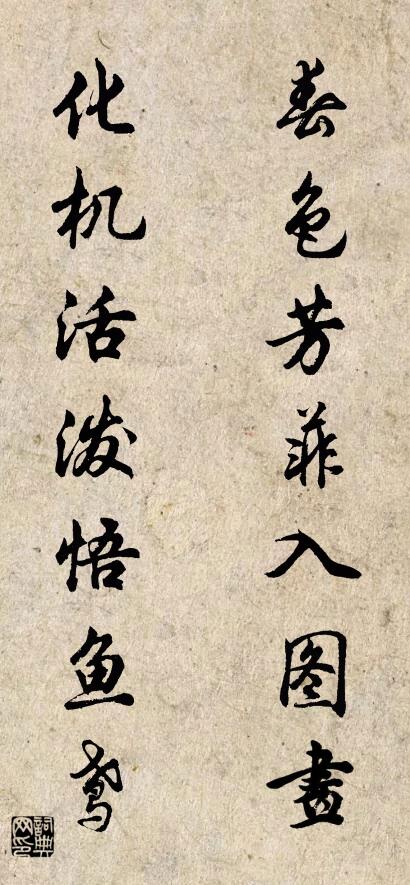 春色芳菲入图畫
化机活泼悟鱼鸢
詞典网印